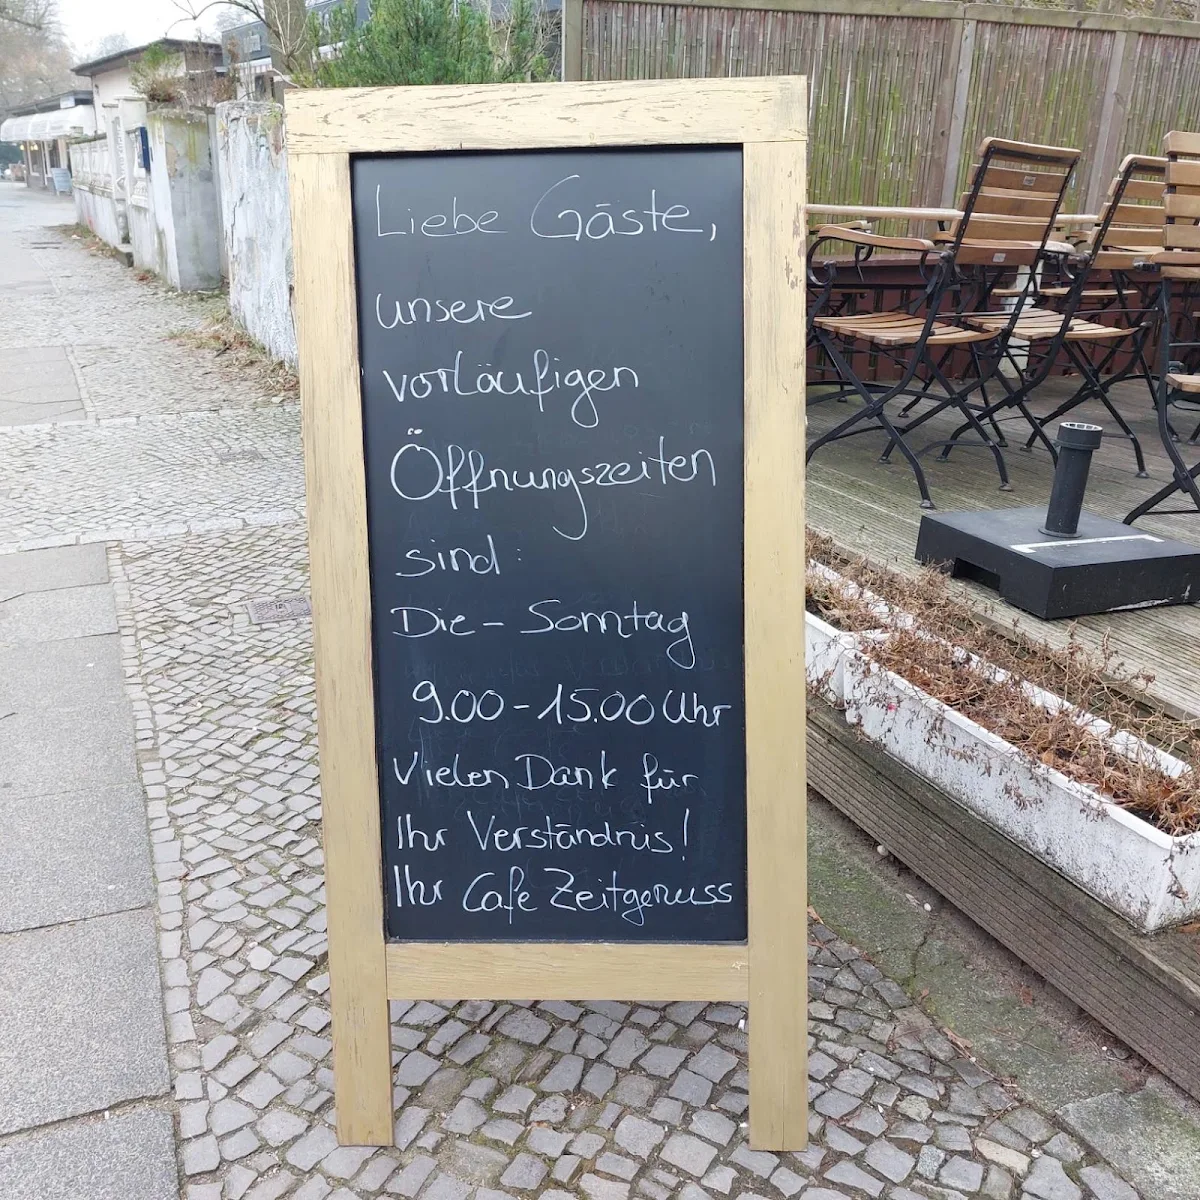 Liebe Gäste,
unsere
vorläufigen
Öffnungszeiten
sind:
Die - Sonntag
9.00 - 15.00 Uhr
Vielen Dank für
Ihr Verständnis!
Ihr Cafe Zeitgenuss